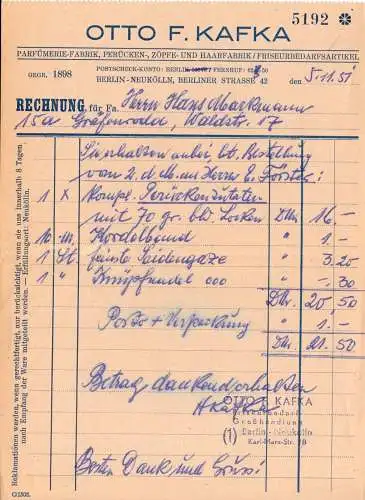 5192 ✽
OTTO F. KAFKA
PARFÜMERIE-FABRIK, PERÜCKEN-, ZÖPFE- UND HAARFABRIK / FRISEURBEDARFSARTIKEL
GEGR. 1898
POSTSCHECK-KONTO: BERLIN FERNRUF: 50
BERLIN-NEUKÖLLN, BERLINER STRASSE 42
den 5.11.51
RECHNUNG, für Fa. Herrn Hans Markmann
15a Gräfenroda, Waldstr. 17
Sie erhalten anbei lt. Bestellung
von 2. d. M. an Herrn E. Förster:
1 X kompl. Perückenzutaten
mit 70 gr. bld. Locken DM 16.-
10 m. Kordelband " 1.-
1 St. feinste Seidengaze " 3.20
1 " Knüpfnadel ooo " -.30
DM. 20,50
Porto + Verpackung " 1.-
DM. 21.50
Betrag dankend erhalten
OTTO F. KAFKA
Friseurbedarf
Großhandlung
(1) Berlin-Neukölln
Karl-Marx-Str.
Besten Dank und Gruss!
Reklamationen werden, wenn gerechtfertigt, nur berücksichtigt, wenn sie uns innerhalb 8 Tagen
nach Empfang der Ware mitgeteilt werden. — Erfüllungsort: Neukölln.